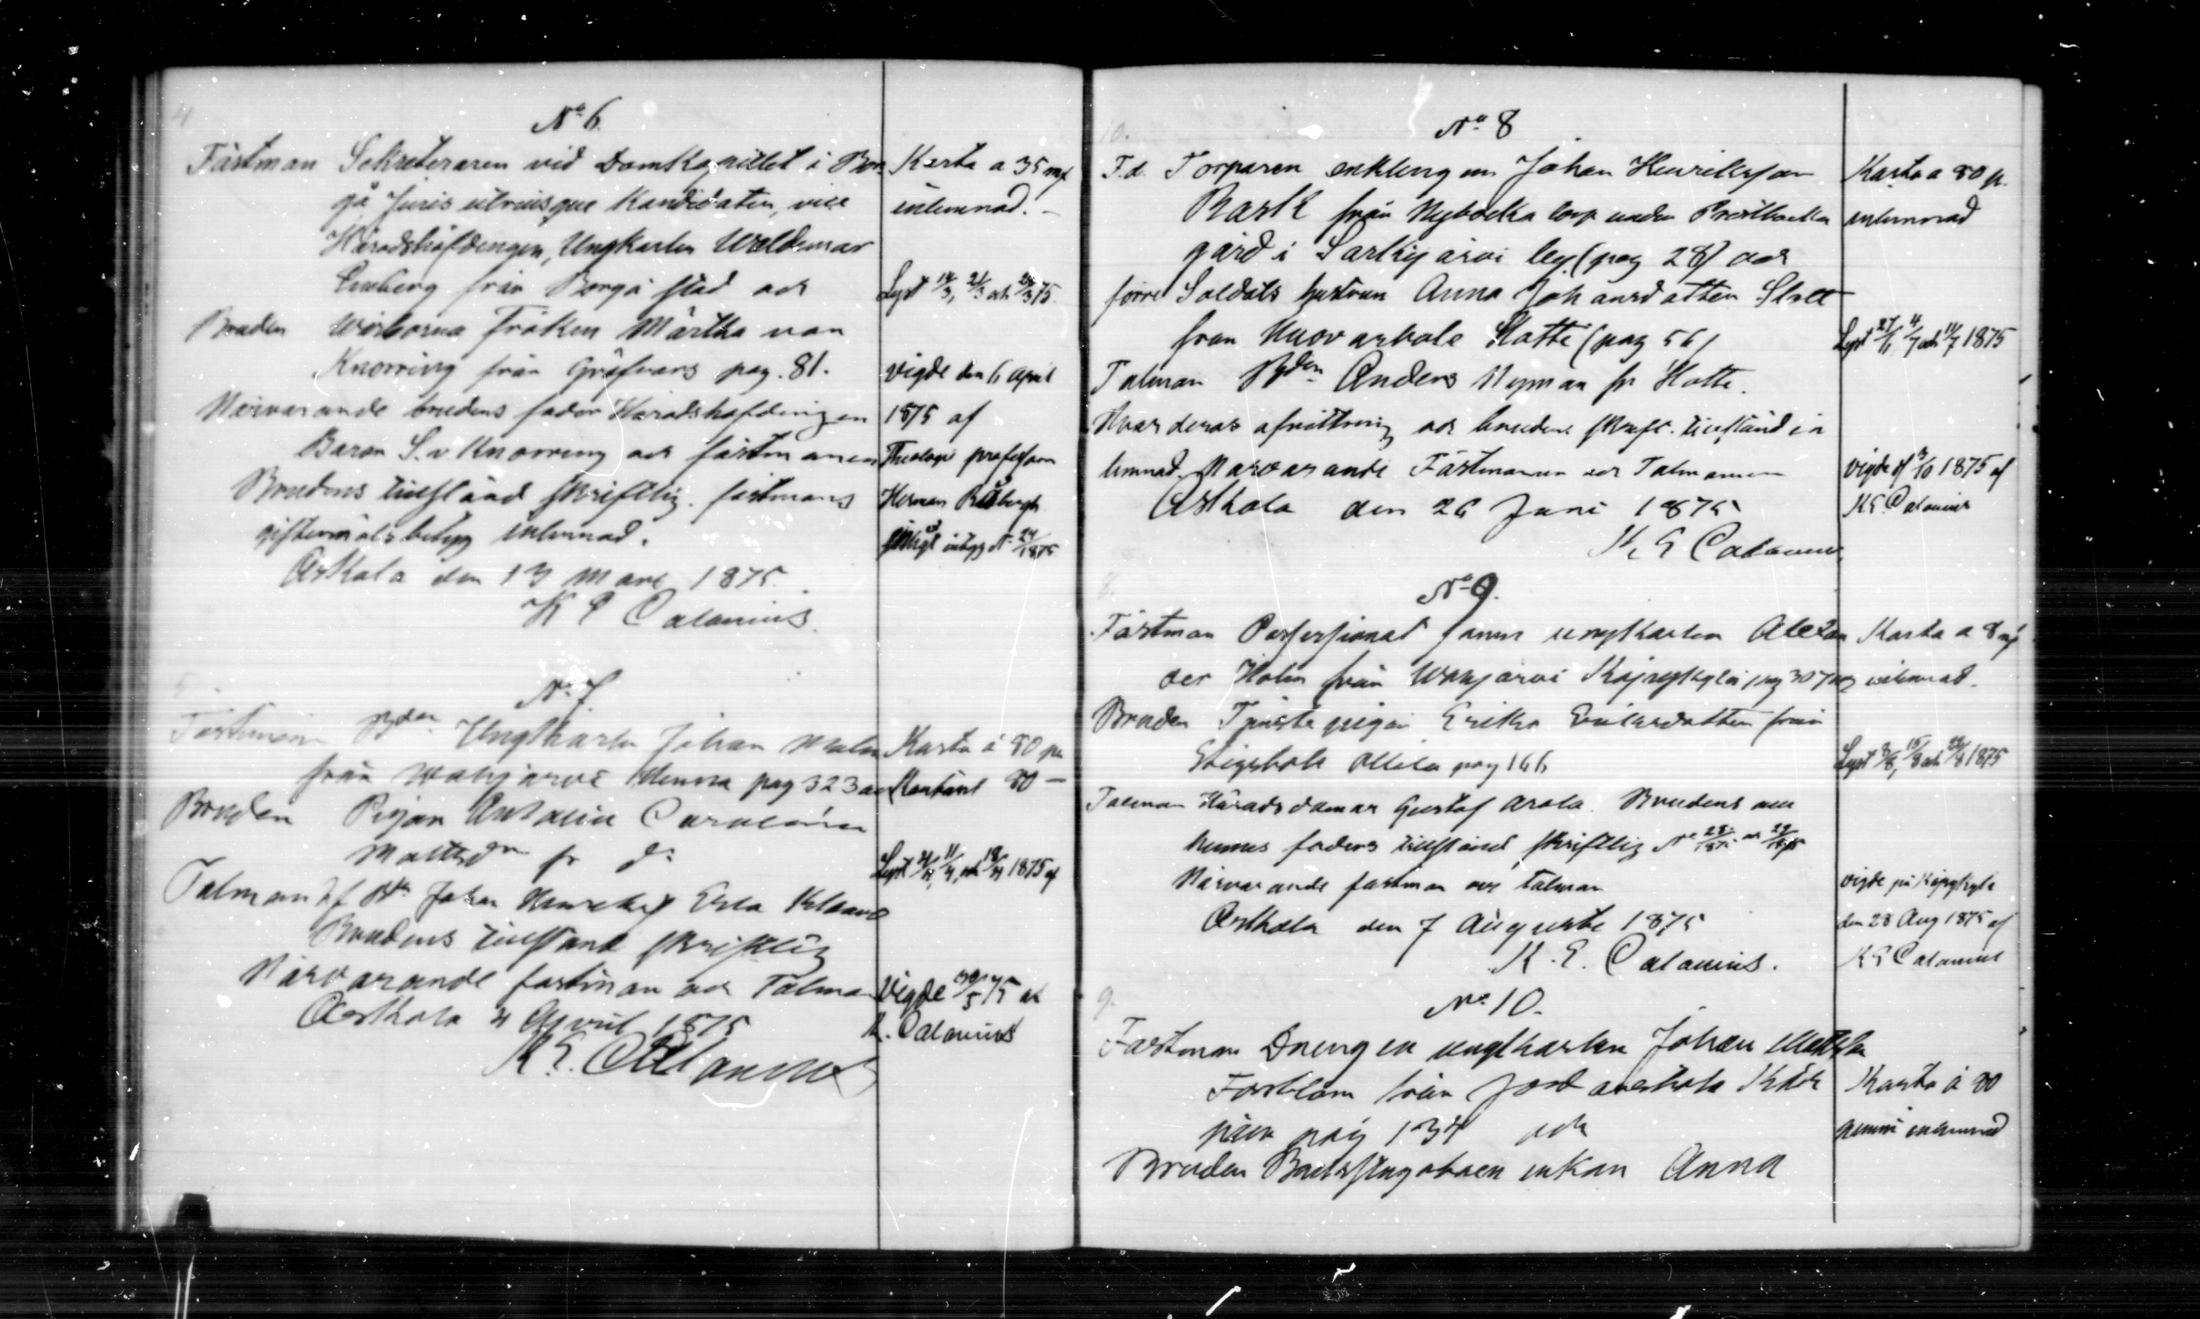 No 6.
Fästman Sekreteraren vid Domkapitlet i Bor-
gå Juris utriusque Kandidaten, vice
Häradshöfdingen, Ungkarlen Woldemar
från Borgå stad och
Bruden Wälborna Fröken Märtha von
Knorring från Gräfnars pag. 81.
Närvarande brudens fader Häradshöfdingen
Baron S. v Knorring och fästmannen
Brudens tillstånd skriftlig. fästmans
giftermålsbetyg inlemnad.
Askola den 13 Mars 1875.
K E Calamnius.
Karta a 35 mk
inlemnad. -
Lyst 14/3, 21/3 och 28/3 75.
vigde den 6 April
1875 af
Theologie professorn
Herman Råbergh
enligt intyg No 24/1875
No 7
Fästman Bden Ungkarln Johan
från Wahijärvi denna pag 323 och
Bruden Pigan Carolina
Mattsdr fr do
Talman Johan
Brudens tillstånd skriftlig
Närvarande fästman och Talman
Askola 4 April 1875
K. E. Calamnius
Karta á 80 pi
Kontant 80 -
Lyst 4/4, 11/4, och 18/4 1875 af
Vigde 30/5 75 af
K. Calamnius
10.
No 8
F.d. Torparen enklingen Johan Henriksson
Rask från Nybacka torp under Prestbacka
gård i Särkijärvi by (pag 28) och
förre Soldats hustrun Anna Johansdotter Slått
från Huovarhole Hotte (pag 56)
Talman Bden Anders Nyman fr Hotte.
Hvarderas afvittring och brudens skrift. tillstånd in
lemnad. Närvarande Fästmannen och Talmannen
Askola den 26 Juni 1875
K E Calamnius
Karta a 80 p.
inlemnad
Lyst 27/6, 4/7 och 11/7 1875
vigde af 1875 af
K E Calamnius
8.
No 9.
Fästman Professionat ungkarlen Alexan
der Holm från Wahijärvi pag 307 och
Bruden Tjenste pigan Erika Eriksdotter från
pag 166
Talman Häradsdomar Gustaf Arola. Brudens och
hennes faders tillstånd skriftlig No
Närvarande fästman och talman
Askola den 7 Augusti 1875
K. E. Calamnius.
Karta a 8 mk
inlemnad.
Lyst 8/8, 15/8 och 22/8 1875
vigde på
den 28 Aug 1875 af
K E Calamnius
9.
No 10.
Fästman Drengen ungkarlen Johan
Forsblom från
pag 134 och
Bruden enkan Anna
Karta á 80
penni inlemnad